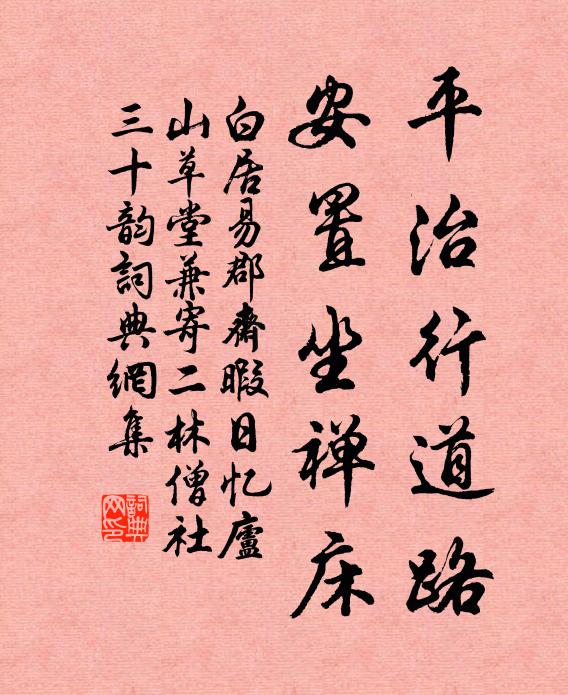 平治行道路
安置坐禅床
白居易郡斋暇日忆廬
山草堂兼寄二林僧社
三十韵詞典網集
詞典
网印